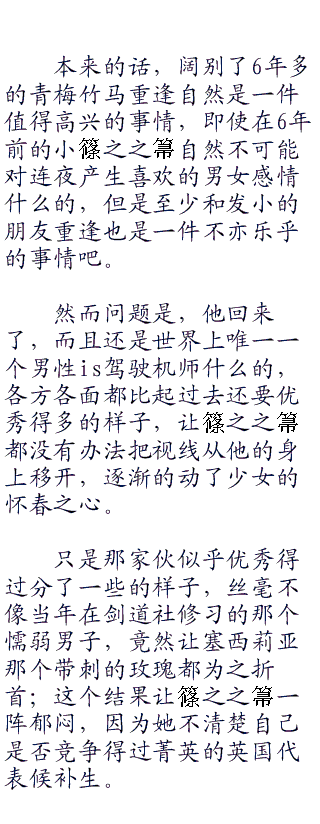 本来的话，阔别了6年多
的青梅竹马重逢自然是一件
值得高兴的事情，即使在6年
前的小篠之之箒自然不可能
对连夜产生喜欢的男女感情
什么的，但是至少和发小的
朋友重逢也是一件不亦乐乎
的事情吧。
然而问题是，他回来
了，而且还是世界上唯一一
个男性is驾驶机师什么的，
各方各面都比起过去还要优
秀得多的样子，让篠之之箒
都没有办法把视线从他的身
上移开，逐渐的动了少女的
怀春之心。
只是那家伙似乎优秀得
过分了一些的样子，丝毫不
像当年在剑道社修习的那个
懦弱男子，竟然让塞西莉亚
那个带刺的玫瑰都为之折
首；这个结果让篠之之箒一
阵郁闷，因为她不清楚自己
是否竞争得过菁英的英国代
表候补生。